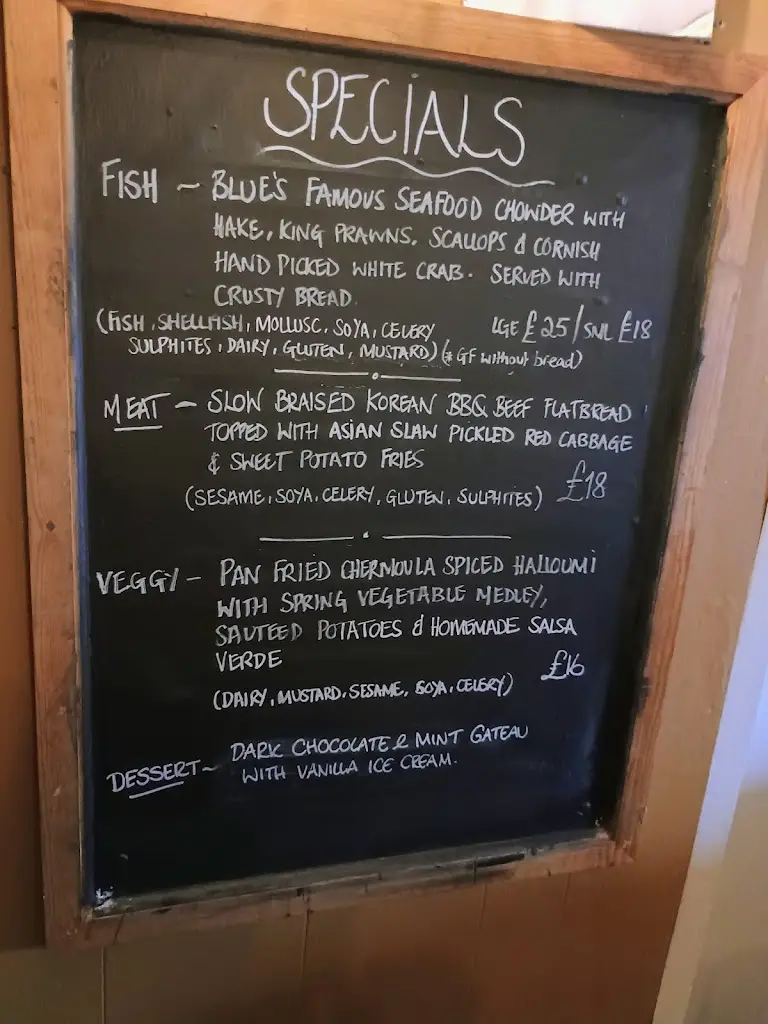 SPECIALS
FISH ~ BLUE'S FAMOUS SEAFOOD CHOWDER WITH
HAKE, KING PRAWNS, SCALLOPS & CORNISH
HAND PICKED WHITE CRAB. SERVED WITH
CRUSTY BREAD.
(FISH, SHELLFISH, MOLLUSC, SOYA, CELERY LGE £25/SML £18
SULPHITES, DAIRY, GLUTEN, MUSTARD) (* GF without bread)
MEAT - SLOW BRAISED KOREAN BBQ BEEF FLATBREAD
TOPPED WITH ASIAN SLAW PICKLED RED CABBAGE
& SWEET POTATO FRIES
(SESAME, SOYA, CELERY, GLUTEN, SULPHITES) £18
VEGGY - PAN FRIED CHERMOULA SPICED HALLOUMI
WITH SPRING VEGETABLE MEDLEY,
SAUTEED POTATOES & HOMEMADE SALSA
VERDE £16
(DAIRY, MUSTARD, SESAME, SOYA, CELERY)
DESSERT ~ DARK CHOCOLATE & MINT GATEAU
WITH VANILLA ICE CREAM.